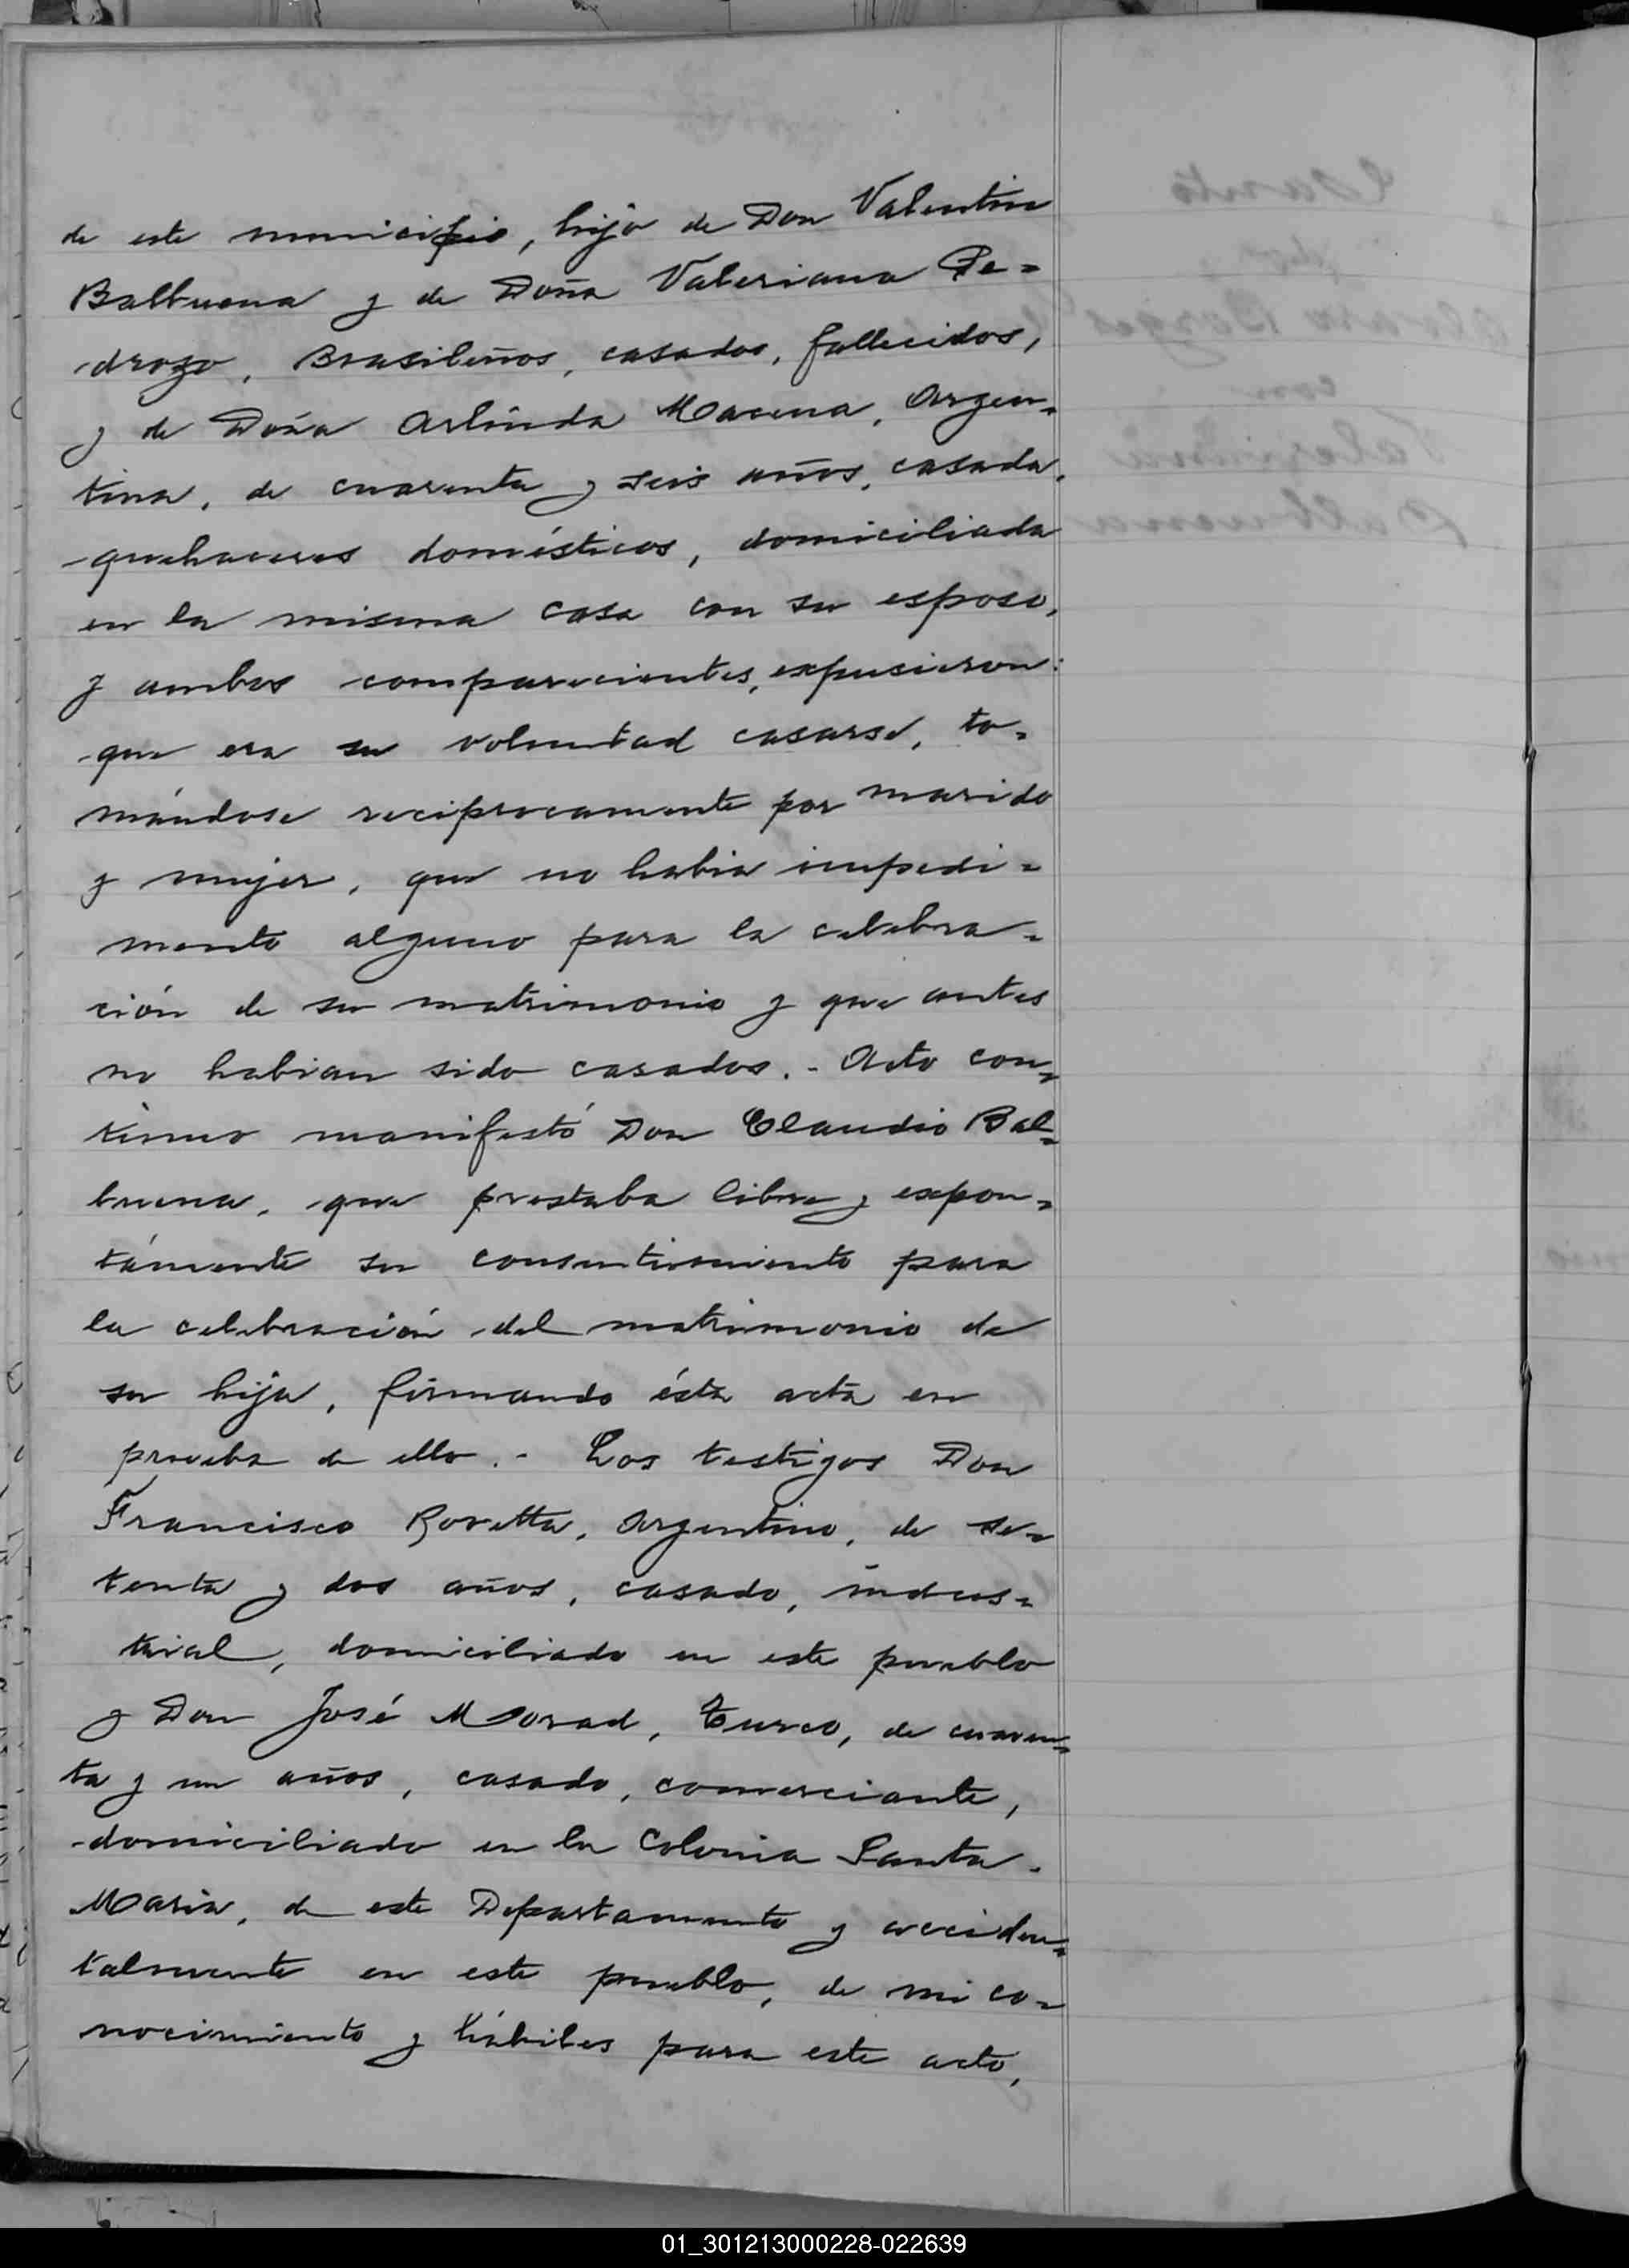 de este municipio, hijo de Don Valentin
Balbuena y de Doña Valeriana Pe=
drozo, Brasileños, casados, fallecidos,
y de Doña Arlinda Macena, Argen=
tina, de cuarenta y seis años, casada,
quehaceres domésticos, domiciliada
en la misma casa con su esposo,
y ambos comparecientes, expusieron:
que era su voluntad casarse, to=
mándose reciprocamente por marido
y mujer, que no habia impedi=
mento alguno para la celebra=
ción de su matrimonio y que antes
no habian sido casados.- Acto con=
tinuo manifestó Don Claudio Bal=
buena, que prestaba libre y expon=
támente su consentimiento para
la celebración del matrimonio de
su hija, firmando ésta acta en
prueba de ello.- Los testigos Don
Francisco Rovetta, Argentino, de se=
tenta y dos años, casado, indus=
trial, domiciliado en este pueblo
y Don José Morad, Turco, de cuaren=
ta y un años, casado, comerciante,
domiciliado en la Colonia Santa
Maria, de este Departamento y acciden=
talmente en este pueblo, de mi co=
nocimiento y hábiles para este acto,
01_301213000228-022639